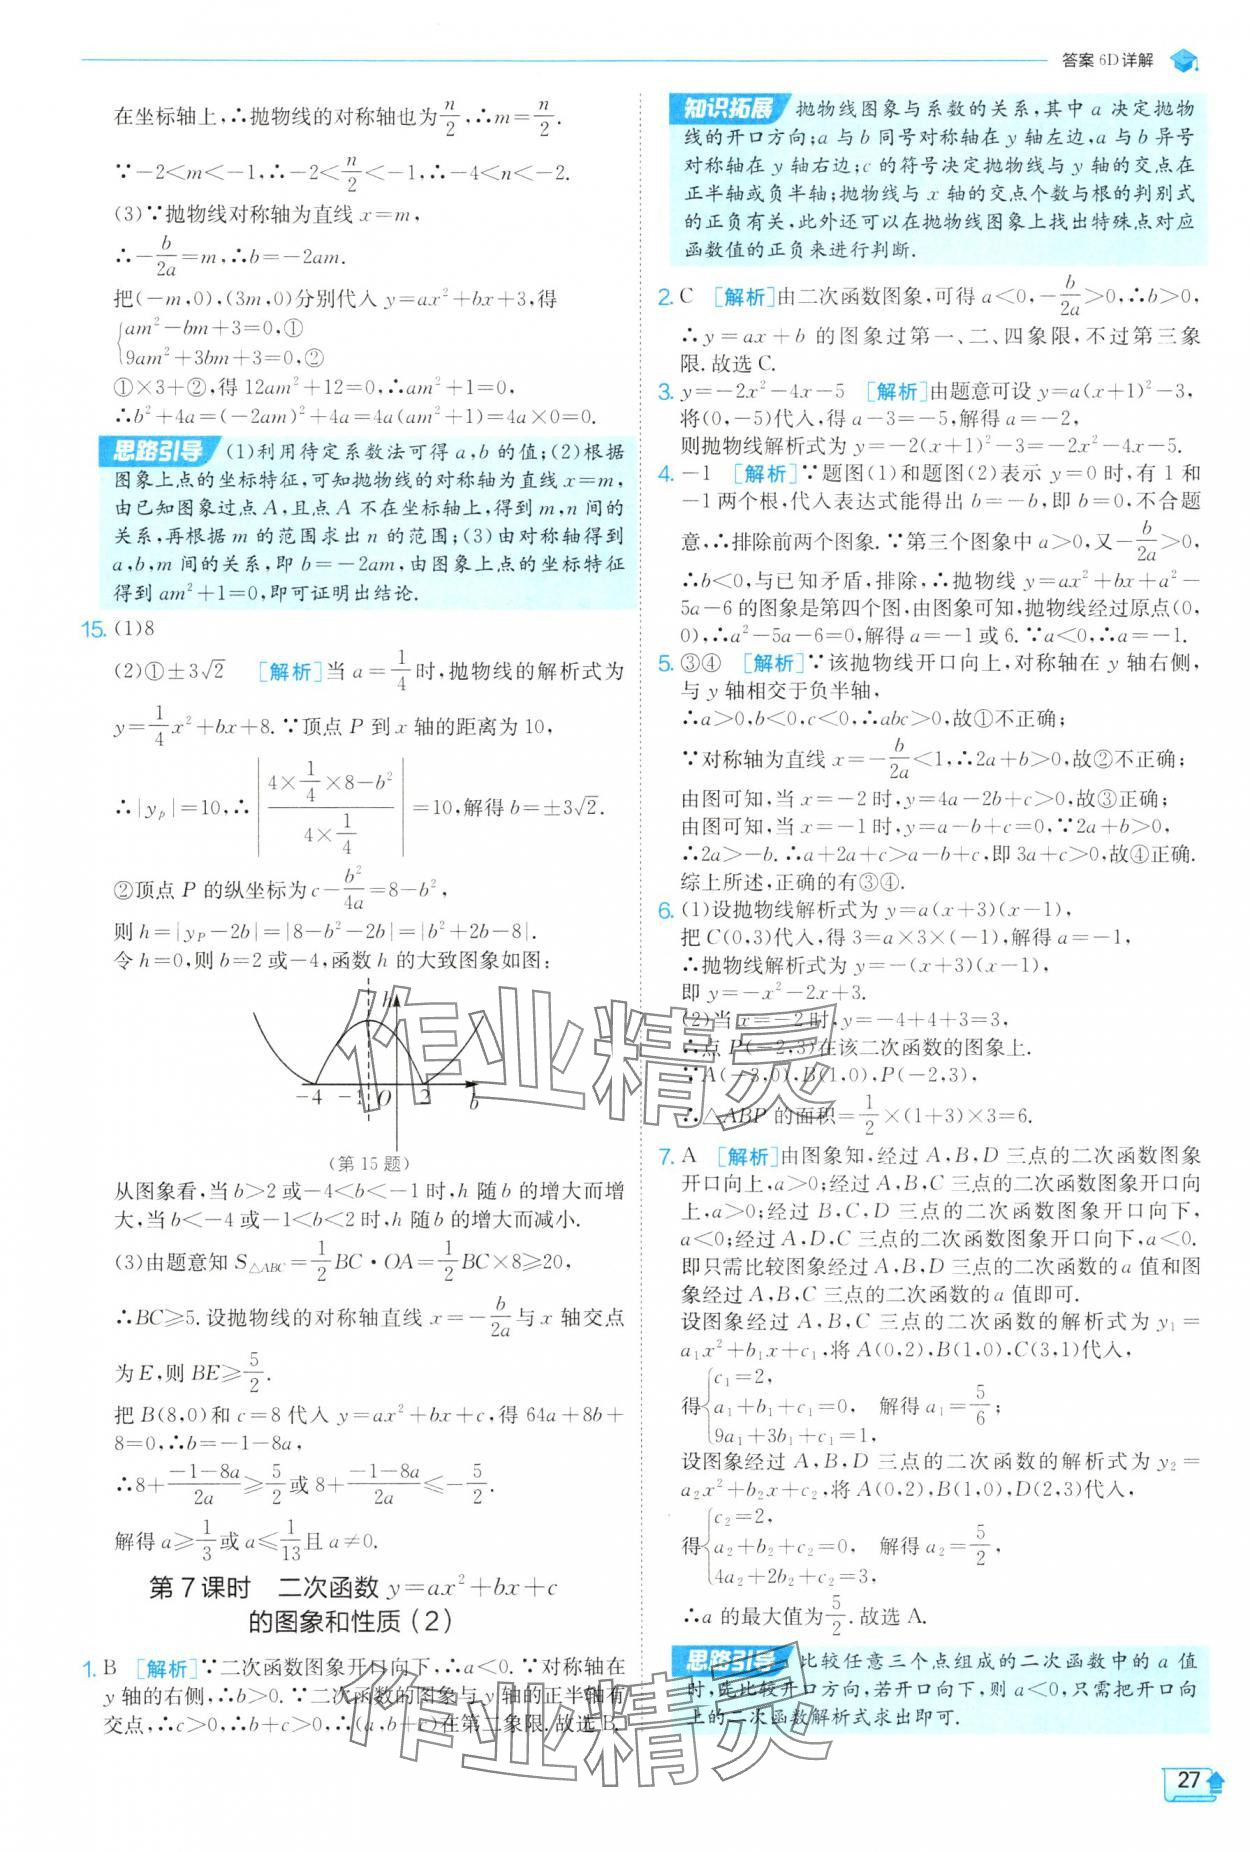 答案 6D详解
在坐标轴上,∴抛物线的对称轴也为n/2,∴m=n/2.
∵-2<m<-1,∴-2<n/2<-1,∴-4<n<-2.
(3)∵抛物线对称轴为直线 x=m,
∴-b/2a=m,∴b=-2am.
把(-m,0),(3m,0)分别代入 y=ax²+bx+3,得
{am²-bm+3=0,①
9am²+3bm+3=0,②
①×3+②,得 12am²+12=0,∴am²+1=0,
∴b²+4a=(-2am)²+4a=4a(am²+1)=4a×0=0.
思路引导 (1)利用待定系数法可得 a,b 的值;(2)根据
图象上点的坐标特征,可知抛物线的对称轴为直线 x=m,
由已知图象过点 A,且点 A 不在坐标轴上,得到 m,n 间的
关系,再根据 m 的范围求出 n 的范围;(3)由对称轴得到
a,b,m 间的关系,即 b=-2am,由图象上点的坐标特征
得到 am²+1=0,即可证明出结论.
15. (1)8
(2)①±3√2 [解析]当 a=1/4时,抛物线的解析式为
y=1/4x²+bx+8.∵顶点 P 到 x 轴的距离为 10,
∴|yₚ|=10,∴|(4×1/4×8-b²)/(4×1/4)|=10,解得 b=±3√2.
②顶点 P 的纵坐标为 c-b²/4a=8-b²,
则 h=|y_P-2b|=|8-b²-2b|=|b²+2b-8|.
令 h=0,则 b=2 或-4,函数 h 的大致图象如图:
h
-4 -1 O 2 b
(第 15 题)
从图象看,当 b>2 或-4<b<-1 时,h 随 b 的增大而增
大,当 b<-4 或-1<b<2 时,h 随 b 的增大而减小.
(3)由题意知 S△ABC=1/2BC·OA=1/2BC×8≥20,
∴BC≥5.设抛物线的对称轴直线 x=-b/2a与 x 轴交点
为 E,则 BE≥5/2.
把 B(8,0)和 c=8 代入 y=ax²+bx+c,得 64a+8b+
8=0,∴b=-1-8a,
∴8+(-1-8a)/2a≥5/2或 8+(-1-8a)/2a≤-5/2.
解得 a≥1/3或 a≤1/13且 a≠0.
第 7 课时 二次函数 y=ax²+bx+c
的图象和性质(2)
1. B [解析]∵二次函数图象开口向下,∴a<0.∵对称轴在
y 轴的右侧,∴b>0.∵二次函数的图象与 y 轴的正半轴有
交点,∴c>0,∴b+c>0,∴(a,b+c)在第二象限.故选 B.
知识拓展 抛物线图象与系数的关系,其中 a 决定抛物
线的开口方向;a 与 b 同号对称轴在 y 轴左边,a 与 b 异号
对称轴在 y 轴右边;c 的符号决定抛物线与 y 轴的交点在
正半轴或负半轴;抛物线与 x 轴的交点个数与根的判别式
的正负有关,此外还可以在抛物线图象上找出特殊点对应
函数值的正负来进行判断.
2. C [解析]由二次函数图象,可得 a<0,-b/2a>0,∴b>0,
∴y=ax+b 的图象过第一、二、四象限,不过第三象
限.故选 C.
3. y=-2x²-4x-5 [解析]由题意可设 y=a(x+1)²-3,
将(0,-5)代入,得 a-3=-5,解得 a=-2,
则抛物线解析式为 y=-2(x+1)²-3=-2x²-4x-5.
4. -1 [解析]∵题图(1)和题图(2)表示 y=0 时,有 1 和
-1 两个根,代入表达式能得出 b=-b,即 b=0,不合题
意,∴排除前两个图象.∵第三个图象中 a>0,又-b/2a>0,
∴b<0,与已知矛盾,排除,∴抛物线 y=ax²+bx+a²-
5a-6 的图象是第四个图,由图象可知,抛物线经过原点(0,
0),∴a²-5a-6=0,解得 a=-1 或 6.∵a<0,∴a=-1.
5. ③④ [解析]∵该抛物线开口向上,对称轴在 y 轴右侧,
与 y 轴相交于负半轴,
∴a>0,b<0,c<0,∴abc>0,故①不正确;
∵对称轴为直线 x=-b/2a<1,∴2a+b>0,故②不正确;
由图可知,当 x=-2 时,y=4a-2b+c>0,故③正确;
由图可知,当 x=-1 时,y=a-b+c=0,∵2a+b>0,
∴2a>-b.∴a+2a+c>a-b+c,即 3a+c>0,故④正确.
综上所述,正确的有③④.
6. (1)设抛物线解析式为 y=a(x+3)(x-1),
把 C(0,3)代入,得 3=a×3×(-1),解得 a=-1,
∴抛物线解析式为 y=-(x+3)(x-1),
即 y=-x²-2x+3.
(2)当 x=-2 时,y=-4+4+3=3,
∴点 P(-2,3)在该二次函数的图象上.
∵A(-3,0),B(1,0),P(-2,3),
∴△ABP 的面积=1/2×(1+3)×3=6.
7. A [解析]由图象知,经过 A,B,D 三点的二次函数图象
开口向上,a>0;经过 A,B,C 三点的二次函数图象开口向
上,a>0;经过 B,C,D 三点的二次函数图象开口向下,
a<0;经过 A,D,C 三点的二次函数图象开口向下,a<0.
即只需比较图象经过 A,B,D 三点的二次函数的 a 值和图
象经过 A,B,C 三点的二次函数的 a 值即可.
设图象经过 A,B,C 三点的二次函数的解析式为 y₁=
a₁x²+b₁x+c₁,将 A(0,2),B(1,0),C(3,1)代入,
得{c₁=2,
a₁+b₁+c₁=0, 解得 a₁=5/6;
9a₁+3b₁+c₁=1,
设图象经过 A,B,D 三点的二次函数的解析式为 y₂=
a₂x²+b₂x+c₂,将 A(0,2),B(1,0),D(2,3)代入,
得{c₂=2,
a₂+b₂+c₂=0, 解得 a₂=5/2,
4a₂+2b₂+c₂=3,
∴a 的最大值为5/2.故选 A.
思路引导 比较任意三个点组成的二次函数中的 a 值
时,先比较开口方向,若开口向下,则 a<0,只需把开口向
上的二次函数解析式求出即可.
27
作业精灵
作业精灵